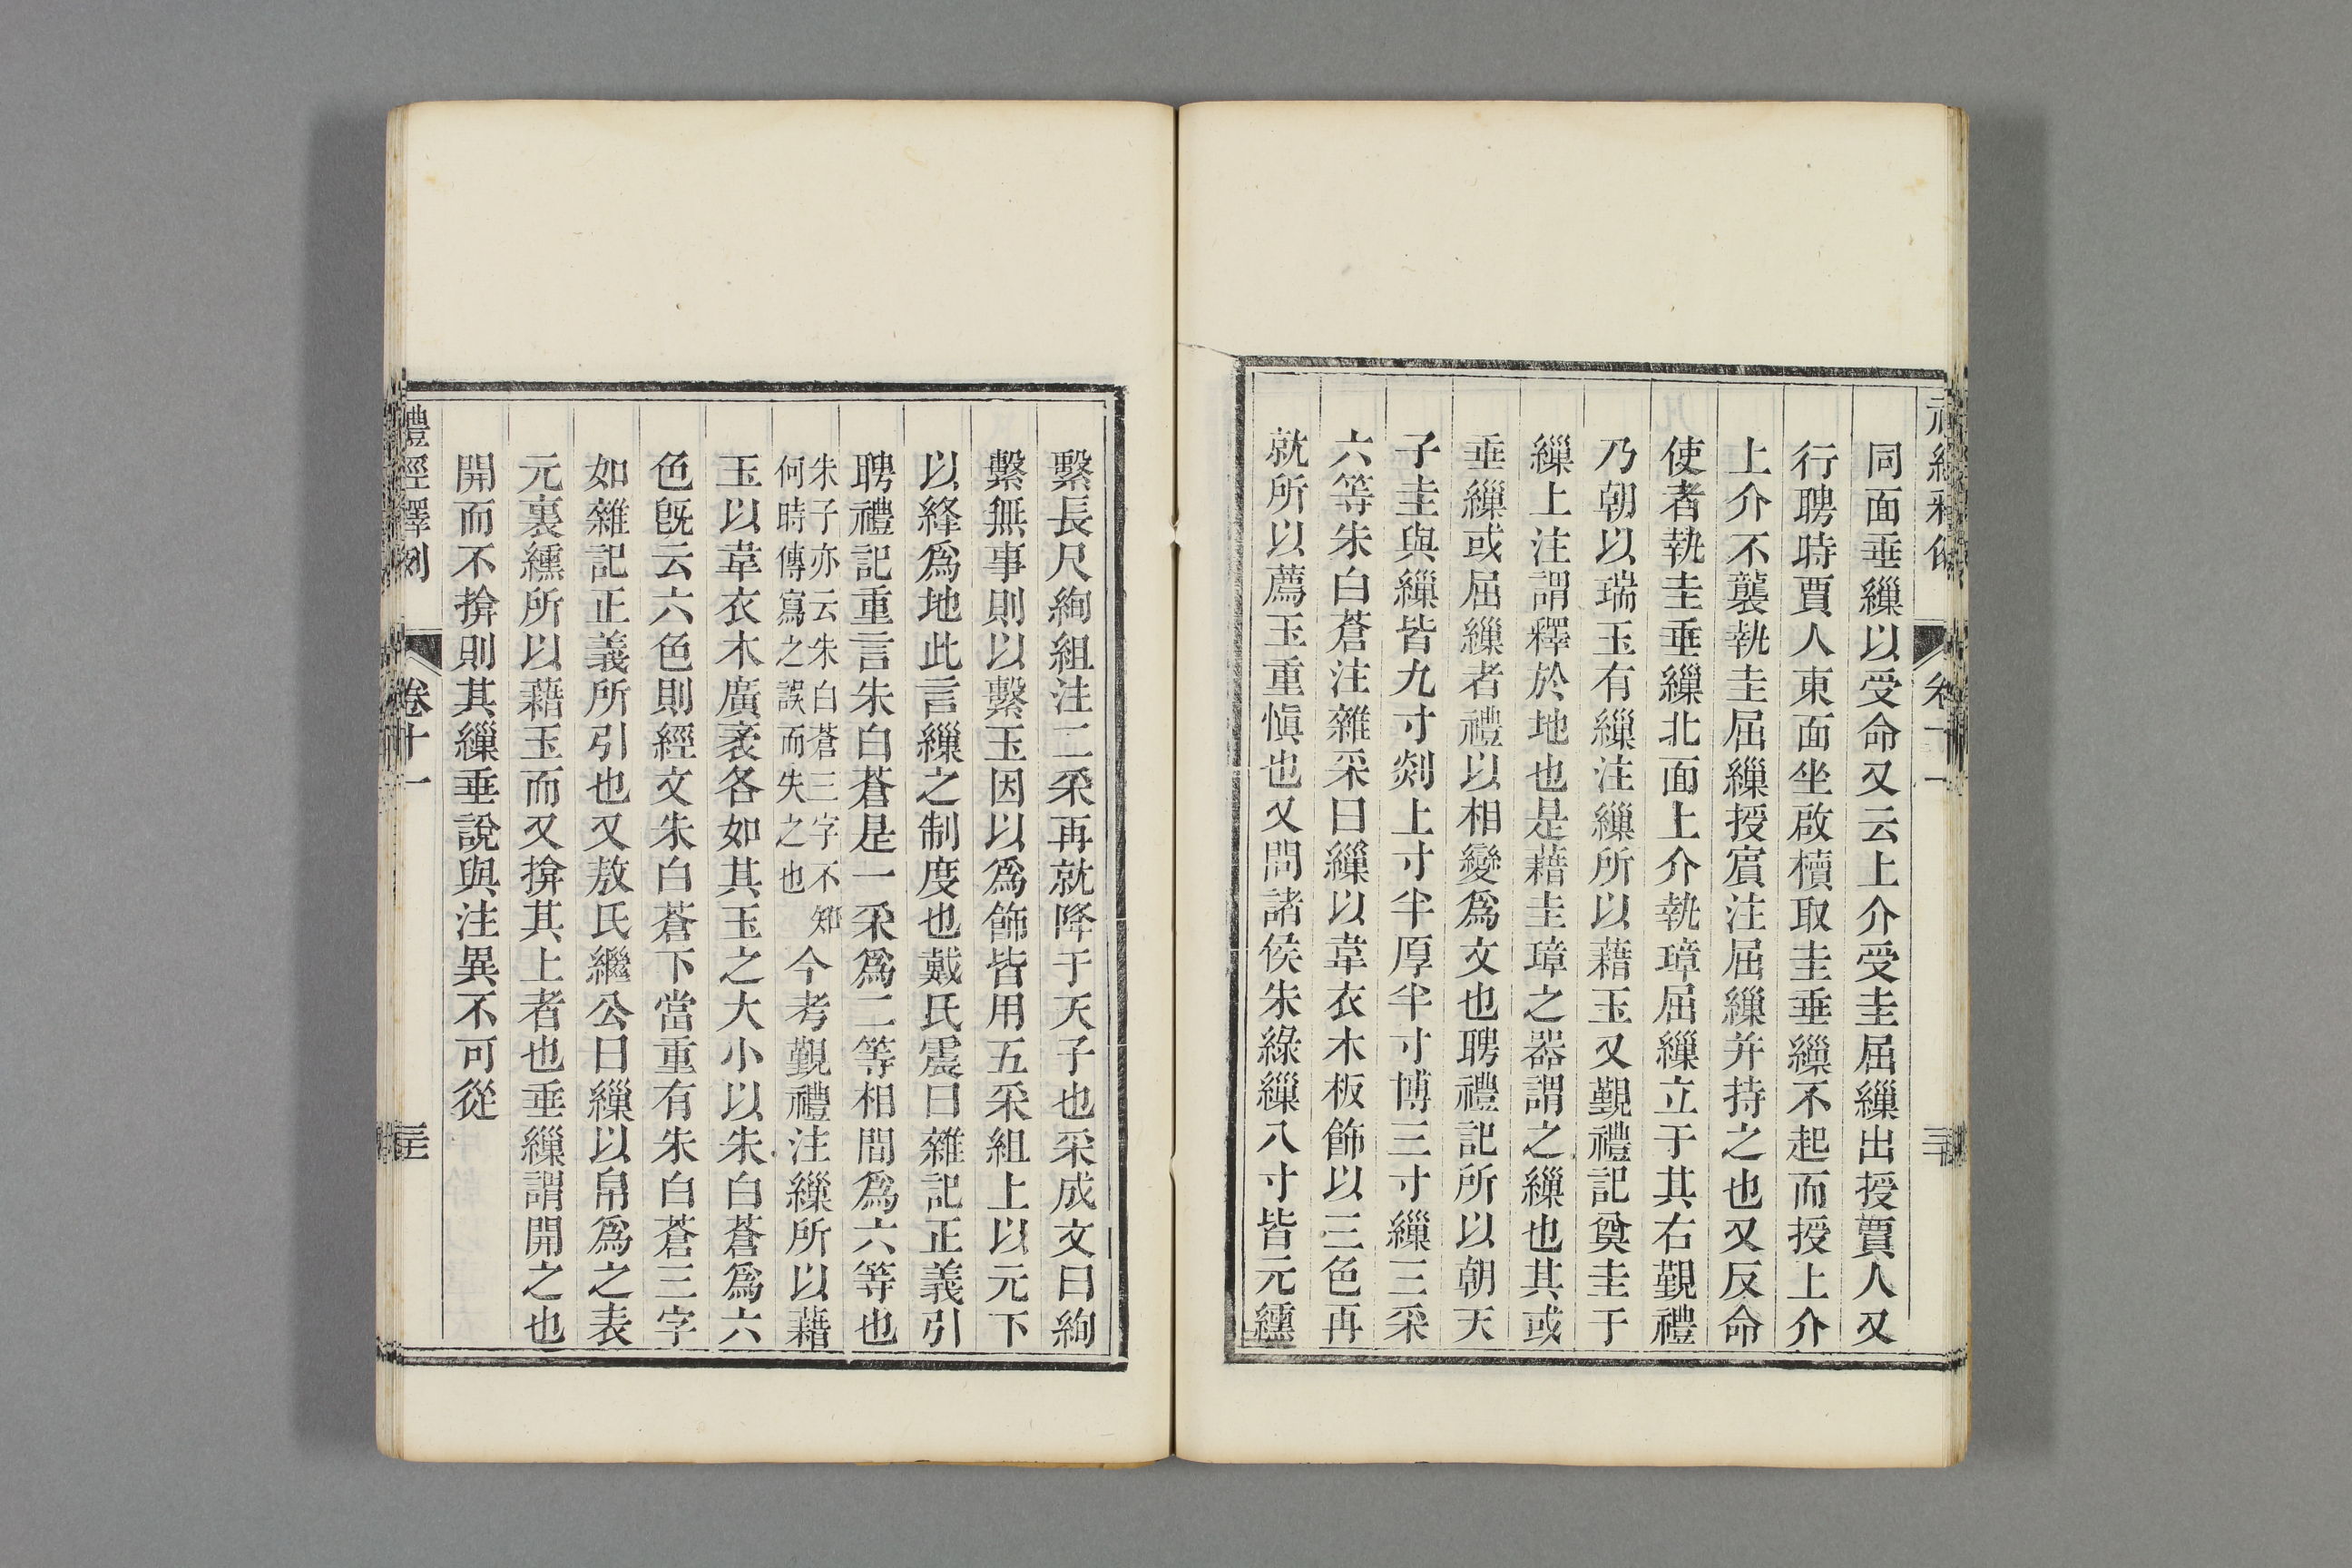 同面垂繅以受命又云上介受圭屈繅出授賈人又
行聘時賈人東面坐啟櫝取圭垂繅不起而授上介
上介不襲執圭屈繅授賔注屈繅并持之也又反命
使者執圭垂繅北面上介執璋屈繅立于其右覲禮
乃朝以瑞玉有繅注繅所以藉玉又覲禮記奠圭于
繅上注謂釋於地也是藉圭璋之器謂之繅也其或
垂繅或屈繅者禮以相變爲文也聘禮記所以朝天
子圭與繅皆九寸剡上寸半厚半寸博三寸繅三采
六等朱白蒼注雜采曰繅以韋衣木板飾以三色再
就所以薦玉重愼也又問諸侯朱綠繅八寸皆元纁
繫長尺絢組注二采再就降于天子也采成文曰絢
繫無事則以繫玉因以爲飾皆用五采組上以元下
以絳爲地此言繅之制度也戴氏震曰雜記正義引
聘禮記重言朱白蒼是一采爲二等相間爲六等也
朱子亦云朱白蒼三字不知
何時傳寫之誤而失之也
今考覲禮注繅所以藉
玉以韋衣木廣袤各如其玉之大小以朱白蒼爲六
色旣云六色則經文朱白蒼下當重有朱白蒼三字
如雜記正義所引也又敖氏繼公曰繅以帛爲之表
元裏纁所以藉玉而又揜其上者也垂繅謂開之也
開而不揜則其繅垂說與注異不可從
禮經釋例
卷十一